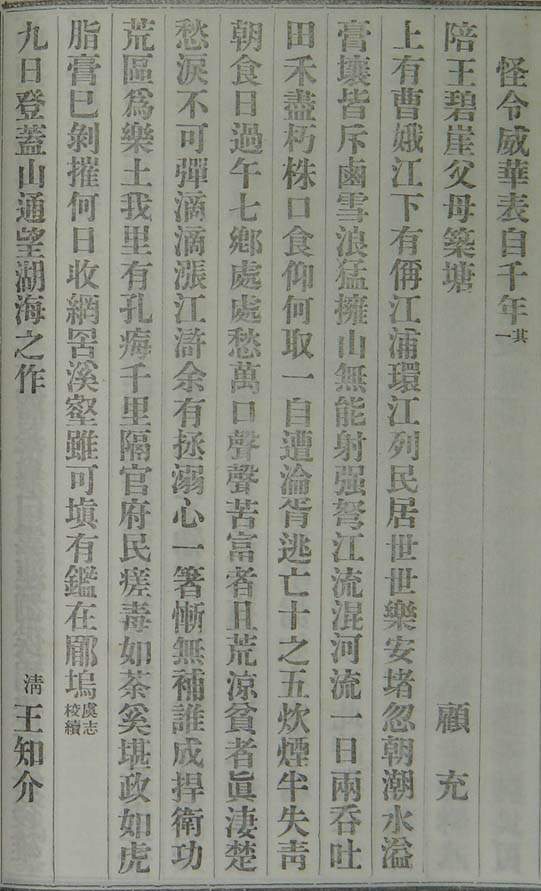 怪令威華表自千年其一
陪王碧崖父母築塘
顧充
上有曹娥江下有偁江浦環江列民居世世樂安堵忽朝潮水溢
膏壤皆斥鹵雪浪猛擁山無能射强弩江流混河流一日兩吞吐
田禾盡朽株口食仰何取一自遭淪胥逃亡十之五炊煙半失靑
朝食日過午七鄉處處愁萬口聲聲苦富者且荒涼貧者眞淒楚
愁淚不可彈滴滴漲江滸余有拯溺心一箸慚無補誰成捍衛功
荒區爲樂土我里有孔痗千里隔官府民瘥毒如荼奚堪政如虎
脂膏已剝摧何日收網罟溪壑雖可塡有鑑在郿塢虞志校續
九日登蓋山通望湖海之作
清王知介